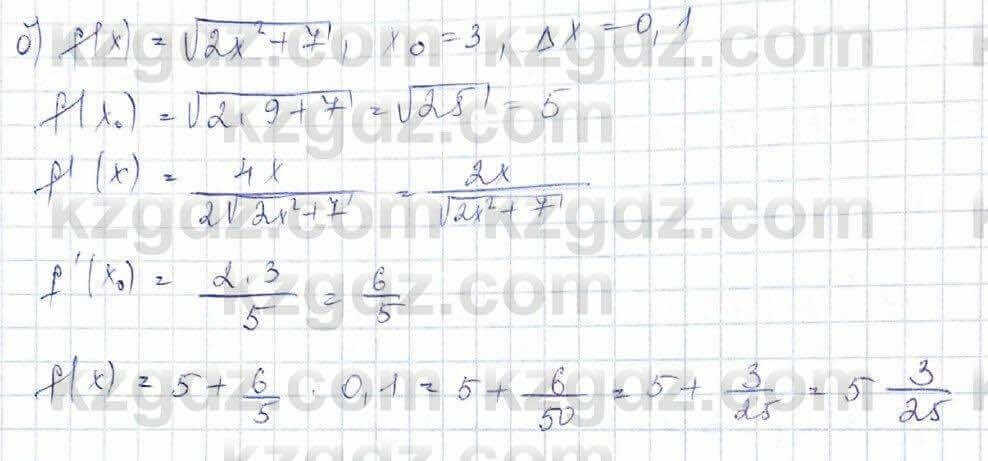 б) f(x) = √(2x² + 7), x₀ = 3, Δx = 0,1
f(x₀) = √(2·9+7) = √25 = 5
f'(x) = 4x / 2√(2x²+7) = 2x / √(2x²+7)
f'(x₀) = 2·3 / 5 = 6/5
f(x) = 5 + 6/5 · 0,1 = 5 + 6/50 = 5 + 3/25 = 5 3/25
kzgdz.com kzgdz.com kzgdz.com kzgdz.com kzgdz.com